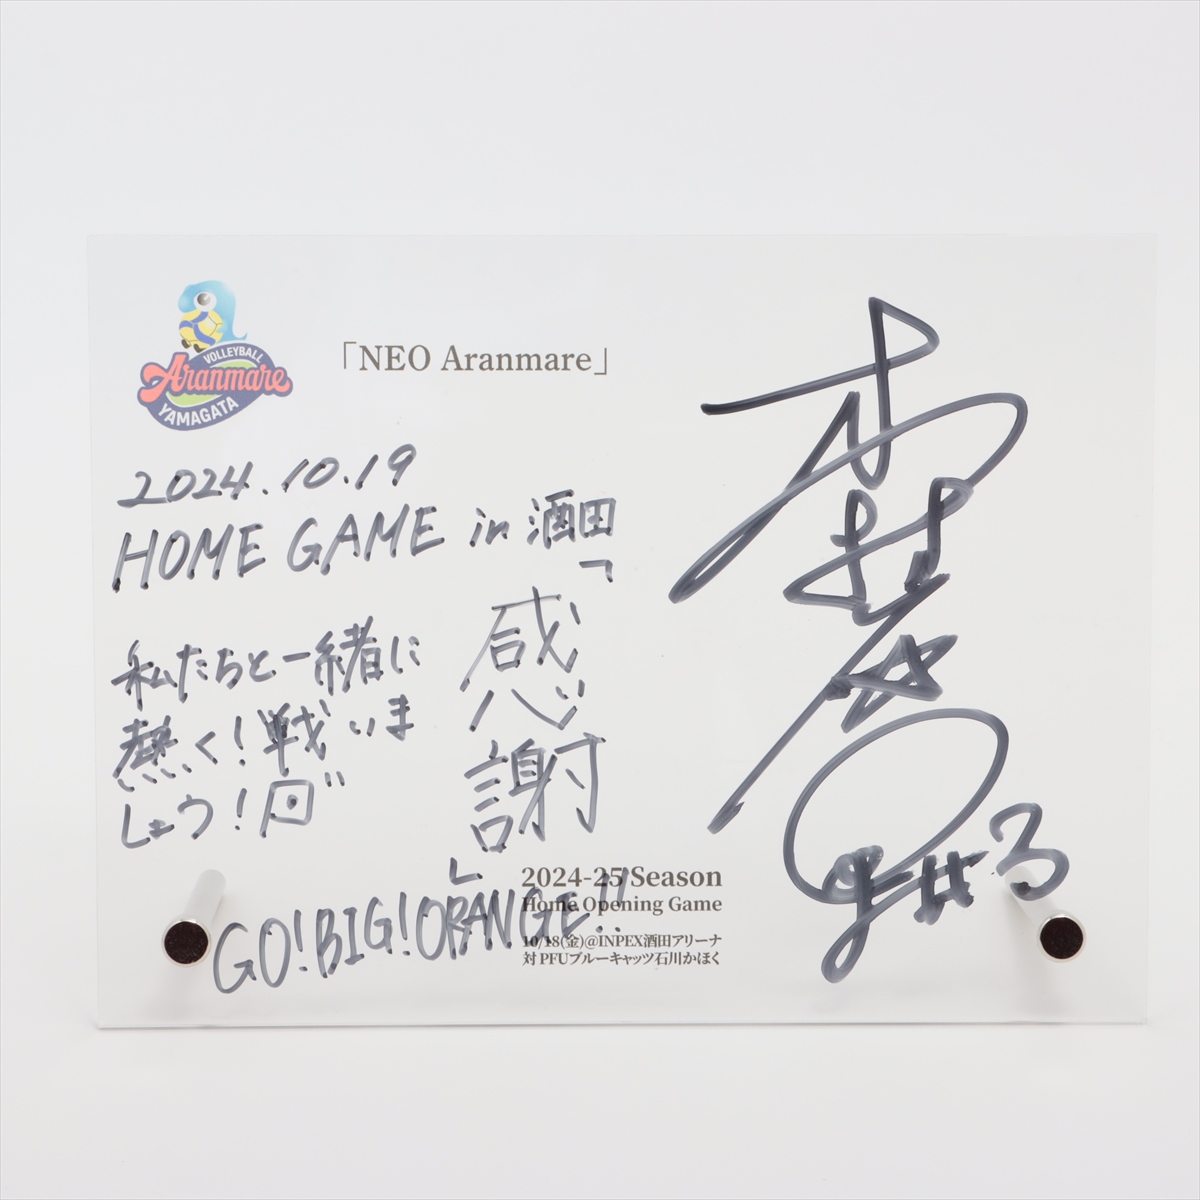 VOLLEYBALL
Aranmare
YAMAGATA
「NEO Aranmare」
2024.10.19
HOME GAME in 酒田
私たちと一緒に
熱く!戦いま
しょう!
「感謝」
GO!BIG!ORANGE!!
#3
2024-25 Season
Home Opening Game
10/18(金)@INPEX酒田アリーナ
対 PFUブルーキャッツ石川かほく